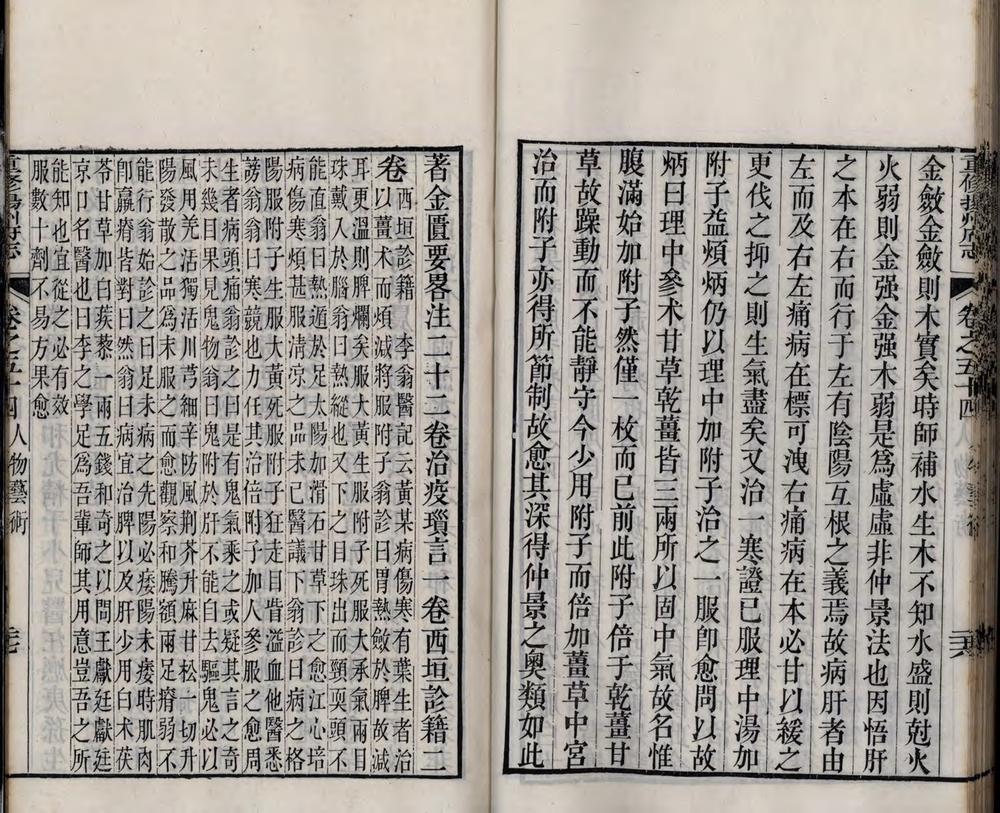 重修揚州府志 卷之五十四 藝術 三六
金斂金斂則木實矣時師補水生木不知水盛則尅火
火弱則金强金强木弱是爲虛虛非仲景法也因悟肝
之本在右而行于左有陰陽互根之義焉故病肝者由
左而及右左痛病在標可洩右痛病在本必甘以緩之
更伐之抑之則生氣盡矣又治一寒證已服理中湯加
附子益煩炳仍以理中加附子治之一服卽愈問以故
炳曰理中參术甘草乾薑皆三兩所以固中氣故名惟
腹滿始加附子然僅一枚而已前此附子倍于乾薑甘
草故躁動而不能靜守今少用附子而倍加薑草中宮
治而附子亦得所節制故愈其深得仲景之奧類如此
著金匱要畧注二十二卷治疫瑣言一卷西垣診籍二
卷
西垣診籍李翁醫記云黃某病傷寒有葉生者治
以薑术而煩減將服附子翁診曰胃熱斂於脾故減
耳更溫則脾爛矣服大黃生附子死服大承氣兩目
珠戴入於腦翁曰熱縱也又下之目珠出而頸耎頭不
能直翁曰熱遁於足太陽加滑石甘草下之愈江心培
病傷寒煩甚服淸凉之品未已醫議下翁診曰病之格
陽服附子生服大黃死服附子狂走目眥溢血他醫悉
謗翁翁曰寒競也力任其治倍附子加人參服之愈周
生者病頭痛翁診之曰是有鬼氣乘之或疑其言之奇
未幾目果見鬼物翁曰鬼附於肝不能自去驅鬼必以
風用羌活獨活川芎細辛防風荆芥升麻甘松一切升
陽發散之品爲末服之而愈觀察和騰額兩足瘠弱不
能行翁始診之曰足未病之先陽必痿陽未痿時肌肉
卽羸瘠皆對曰然翁曰病宜治脾以及肝少用白术茯
苓甘草加白蒺藜一兩五錢和奇之以問王獻廷獻廷
京口名醫也曰李之學足爲吾輩師其用意豈吾之所
能知也宜從之必有效
服數十劑不易方果愈
重修揚州府志 卷之五十四 人物藝術 三七